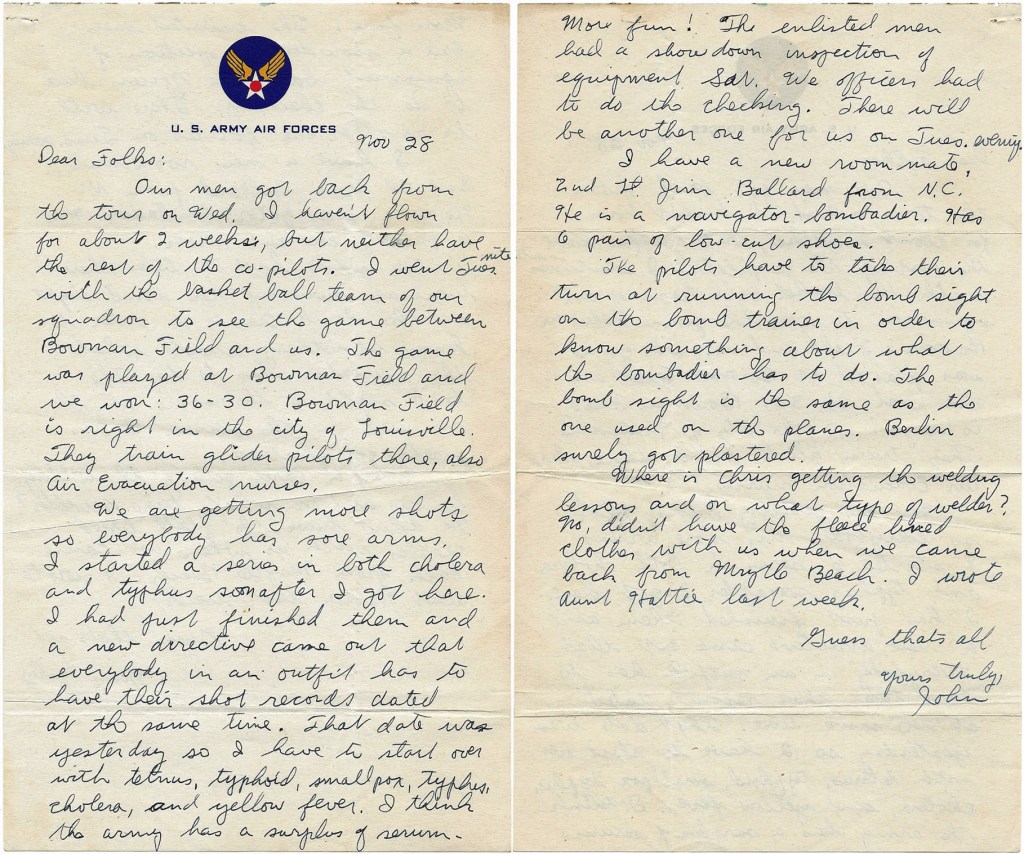 U. S. ARMY AIR FORCES
Nov 28
Dear Folks:
Our men got back from
the tour on Wed. I haven't flown
for about 2 weeks, but neither have
the rest of the co-pilots. I went Tues. nite
with the basket ball team of our
squadron to see the game between
Bowman Field and us. The game
was played at Bowman Field and
we won: 36-30. Bowman Field
is right in the city of Louisville.
They train glider pilots there, also
Air Evacuation nurses.
We are getting more shots
so everybody has sore arms.
I started a series in both cholera
and typhus soon after I got here.
I had just finished them and
a new directive came out that
everybody in an outfit has to
have their shot records dated
at the same time. That date was
yesterday so I have to start over
with tetnus, typhoid, smallpox, typhus,
cholera, and yellow fever. I think
the army has a surplus of serum.
More fun! The enlisted men
had a show down inspection of
equipment Sat. We officers had
to do the checking. There will
be another one for us on Tues. evening.
I have a new room mate,
2nd Lt Jim Ballard from N.C.
He is a navigator-bombadier. Has
6 pair of low-cut shoes.
The pilots have to take their
turn at running the bomb sight
on the bomb trainer in order to
know something about what
the bombadier has to do. The
bomb sight is the same as the
one used on the planes. Berlin
surely got plastered.
Where is Chris getting the welding
lessons and on what type of welder?
No, didn't have the fleece lined
clothes with us when we came
back from Mrytle Beach. I wrote
Aunt Hattie last week.
Guess thats all
yours truly,
John